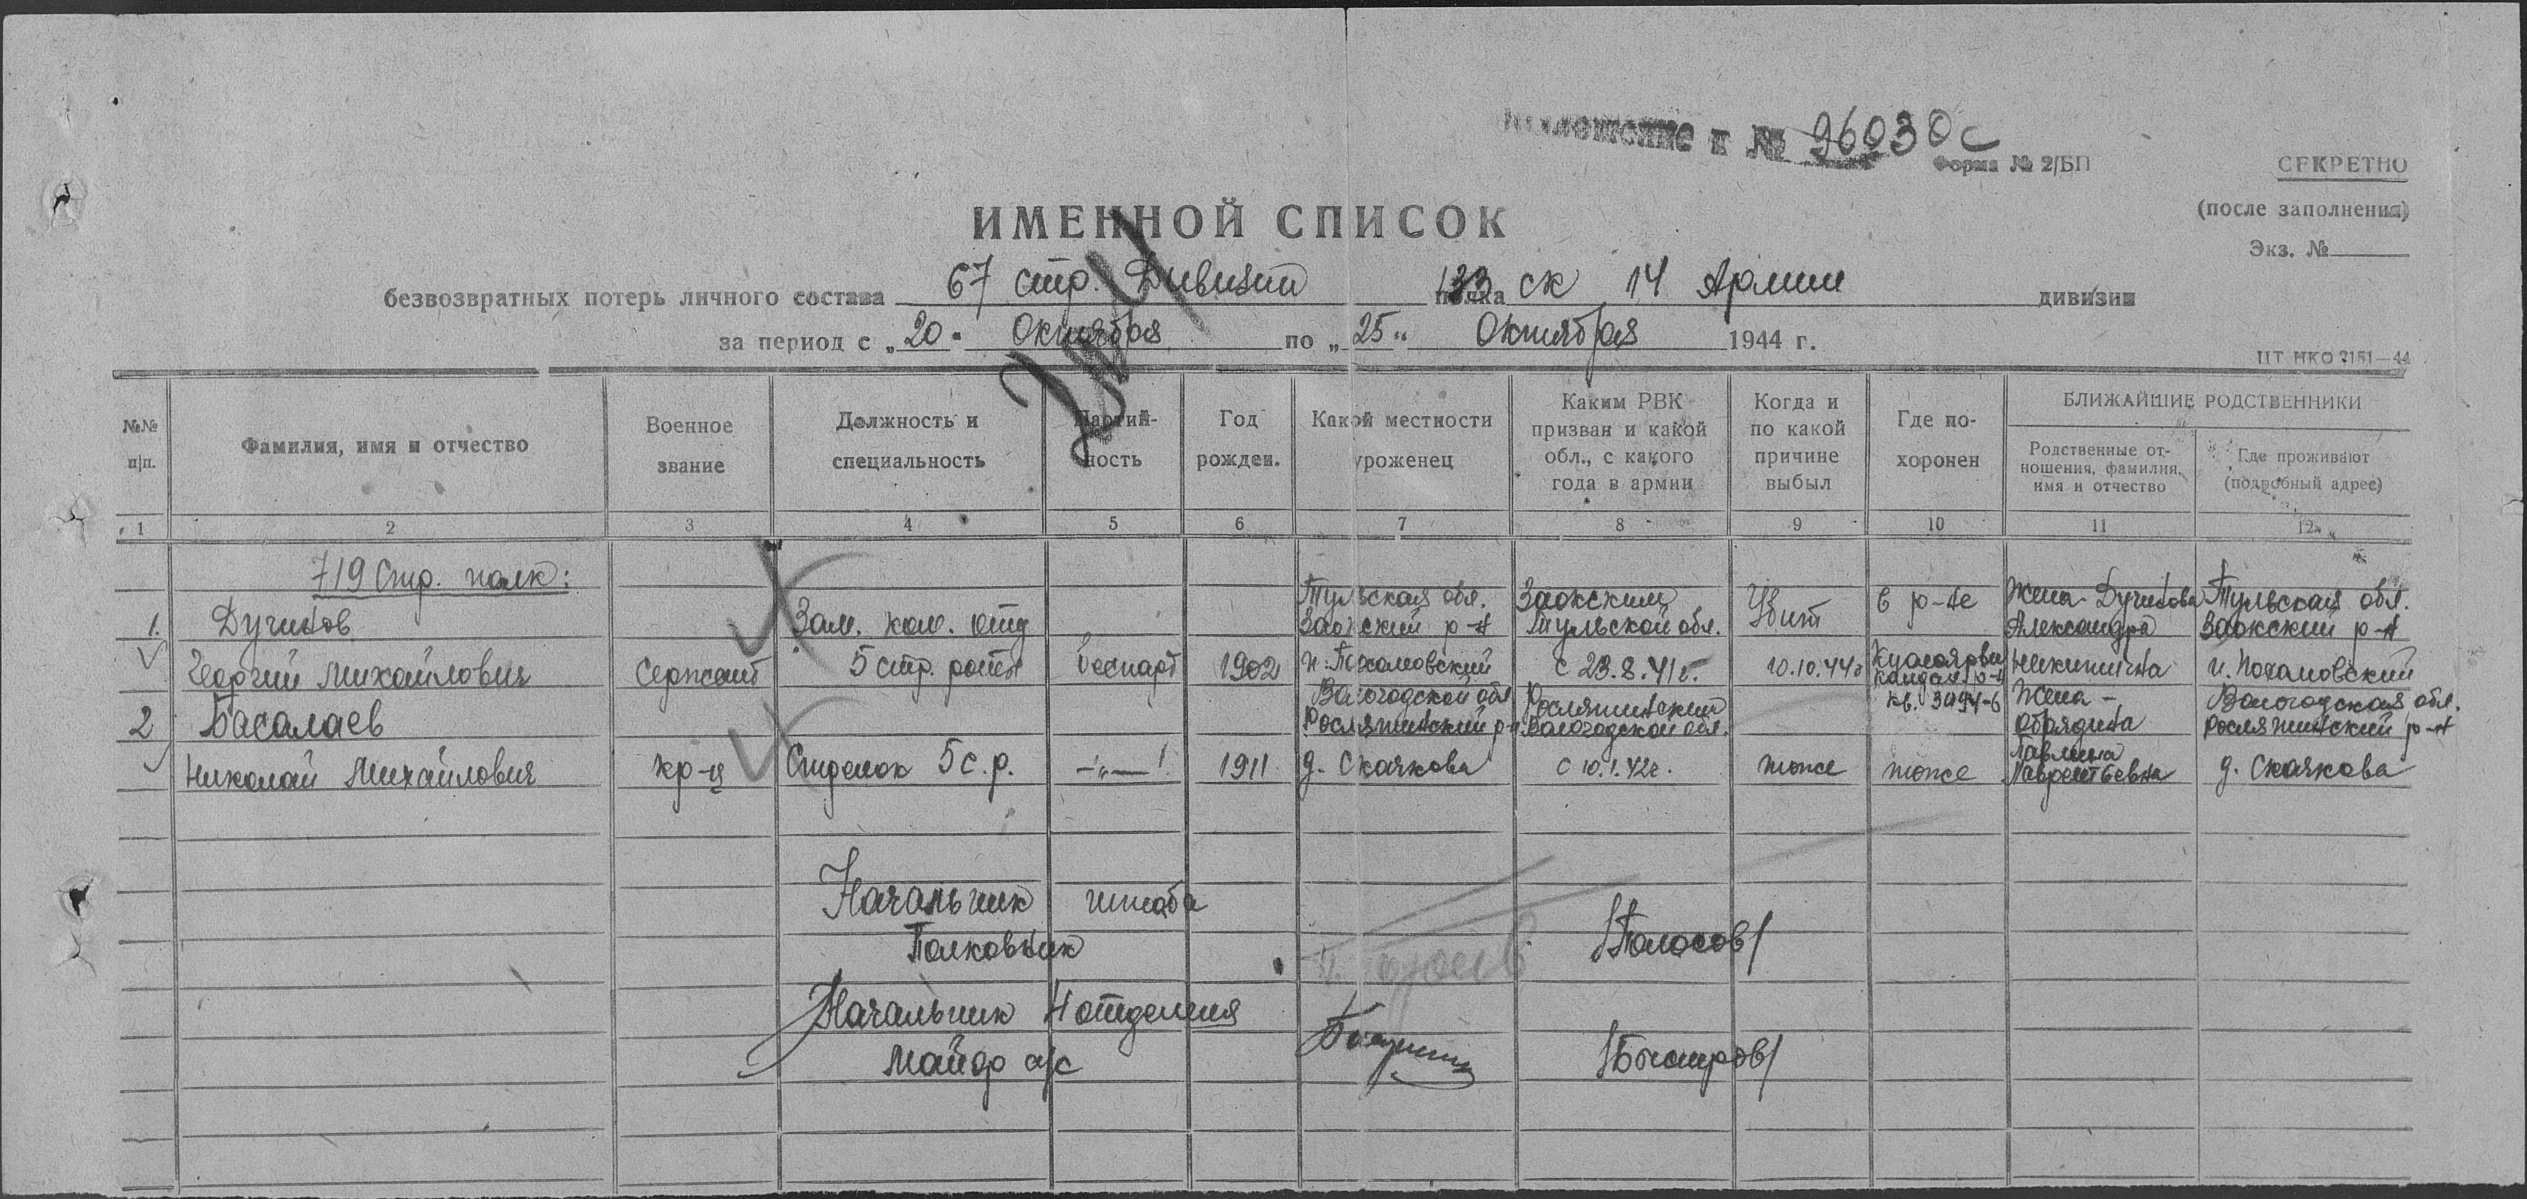 к № 96030с
Форма № 2/БП
СЕКРЕТНО
(после заполнения)
Экз. №
ИМЕННОЙ СПИСОК
безвозвратных потерь личного состава 67 стр. Дивизии 133 ск 14 Армии дивизии
за период с „20“ Октября по „25“ Октября 1944 г.
ЦТ НКО 2151—44
№№ п/п.
Фамилия, имя и отчество
Военное звание
Должность и специальность
Партий-ность
Год рожден.
Какой местности уроженец
Каким РВК призван и какой обл., с какого года в армии
Когда и по какой причине выбыл
Где по-хоронен
БЛИЖАЙШИЕ РОДСТВЕННИКИ
Родственные от-ношения, фамилия, имя и отчество
Где проживают (подробный адрес)
1 2 3 4 5 6 7 8 9 10 11 12
719 Стр. полк:
1. Дучинов Георгий Михайлович
сержант
Зам. ком. отд 5 стр. роты
беспарт
1902
Тульская обл. Заокский р-н
Заокским Тульской обл. с 23.8.41г.
Убит 10.10.44г
в р-не кв. 3494-б
Жена - Дучинова Александра Никитична
Тульская обл. Заокский р-н
2 Басалаев Николай Михайлович
кр-ц
Стрелок 5 с.р.
—„—
1911
Вологодской обл Рослятинский р-н д. Скочкова
Рослятинский Вологодской обл. с 10.1.42г.
тоже
тоже
Жена - Лаврентьевна
Вологодская обл. Рослятинский р-н д. Скочкова
Начальник штаба
Полковник /Полосов/
Начальник 4 отделения
майор а/с /Быстров/